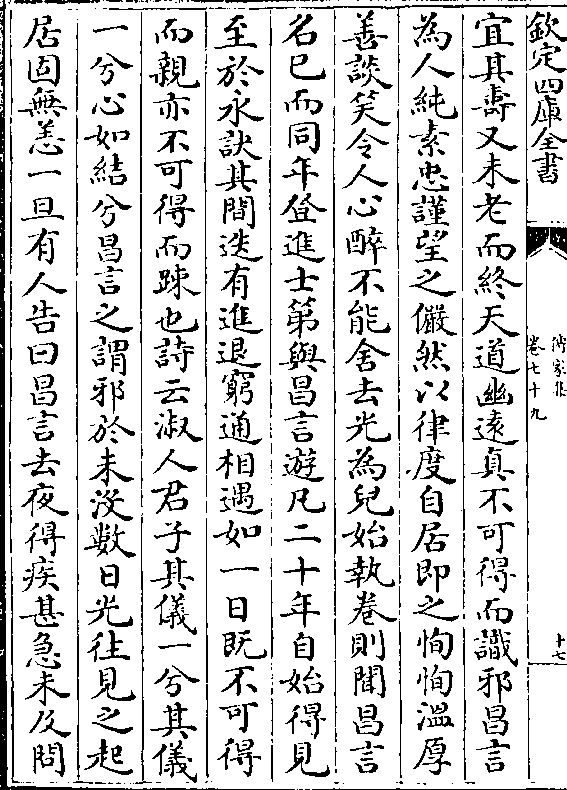 欽定四庫全書
傳家集
卷七十九
十七
宜其壽又未老而終天道幽遠真不可得而識邪昌言
為人純素忠謹望之儼然以律度自居即之恂恂溫厚
善談笑令人心醉不能舍去光為兒始執卷則聞昌言
名已而同年登進士第與昌言遊凡二十年自始得見
至於永訣其間迭有進退窮通相遇如一日既不可得
而親亦不可得而踈也詩云淑人君子其儀一兮其儀
一兮心如結兮昌言之謂邪於未沒數日光往見之起
居固無恙一旦有人告曰昌言去夜得疾甚急未及問